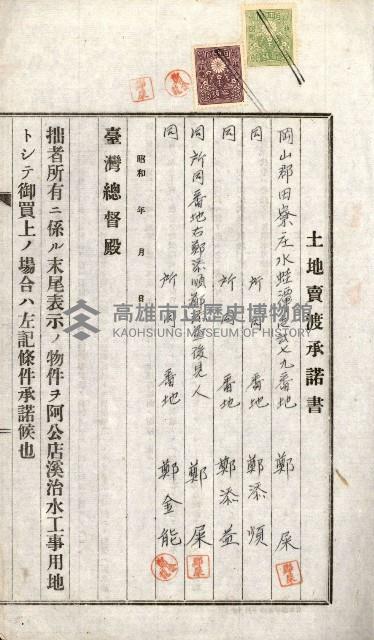 土地賣渡承諾書
岡山郡田寮庄水蛙潭七九番地 鄭屎
同 所同 番地 鄭添順
同 所同 番地 鄭添益
同所同番地右鄭添順鄭添益後見人 鄭屎
同 所同 番地 鄭金能
昭和 年 月 日
臺灣總督殿
拙者所有ニ係ル末尾表示ノ物件ヲ阿公店溪治水工事用地
トシテ御買上ノ場合ハ左記條件承諾候也
高雄市立歷史博物館
KAOHSIUNG MUSEUM OF HISTORY